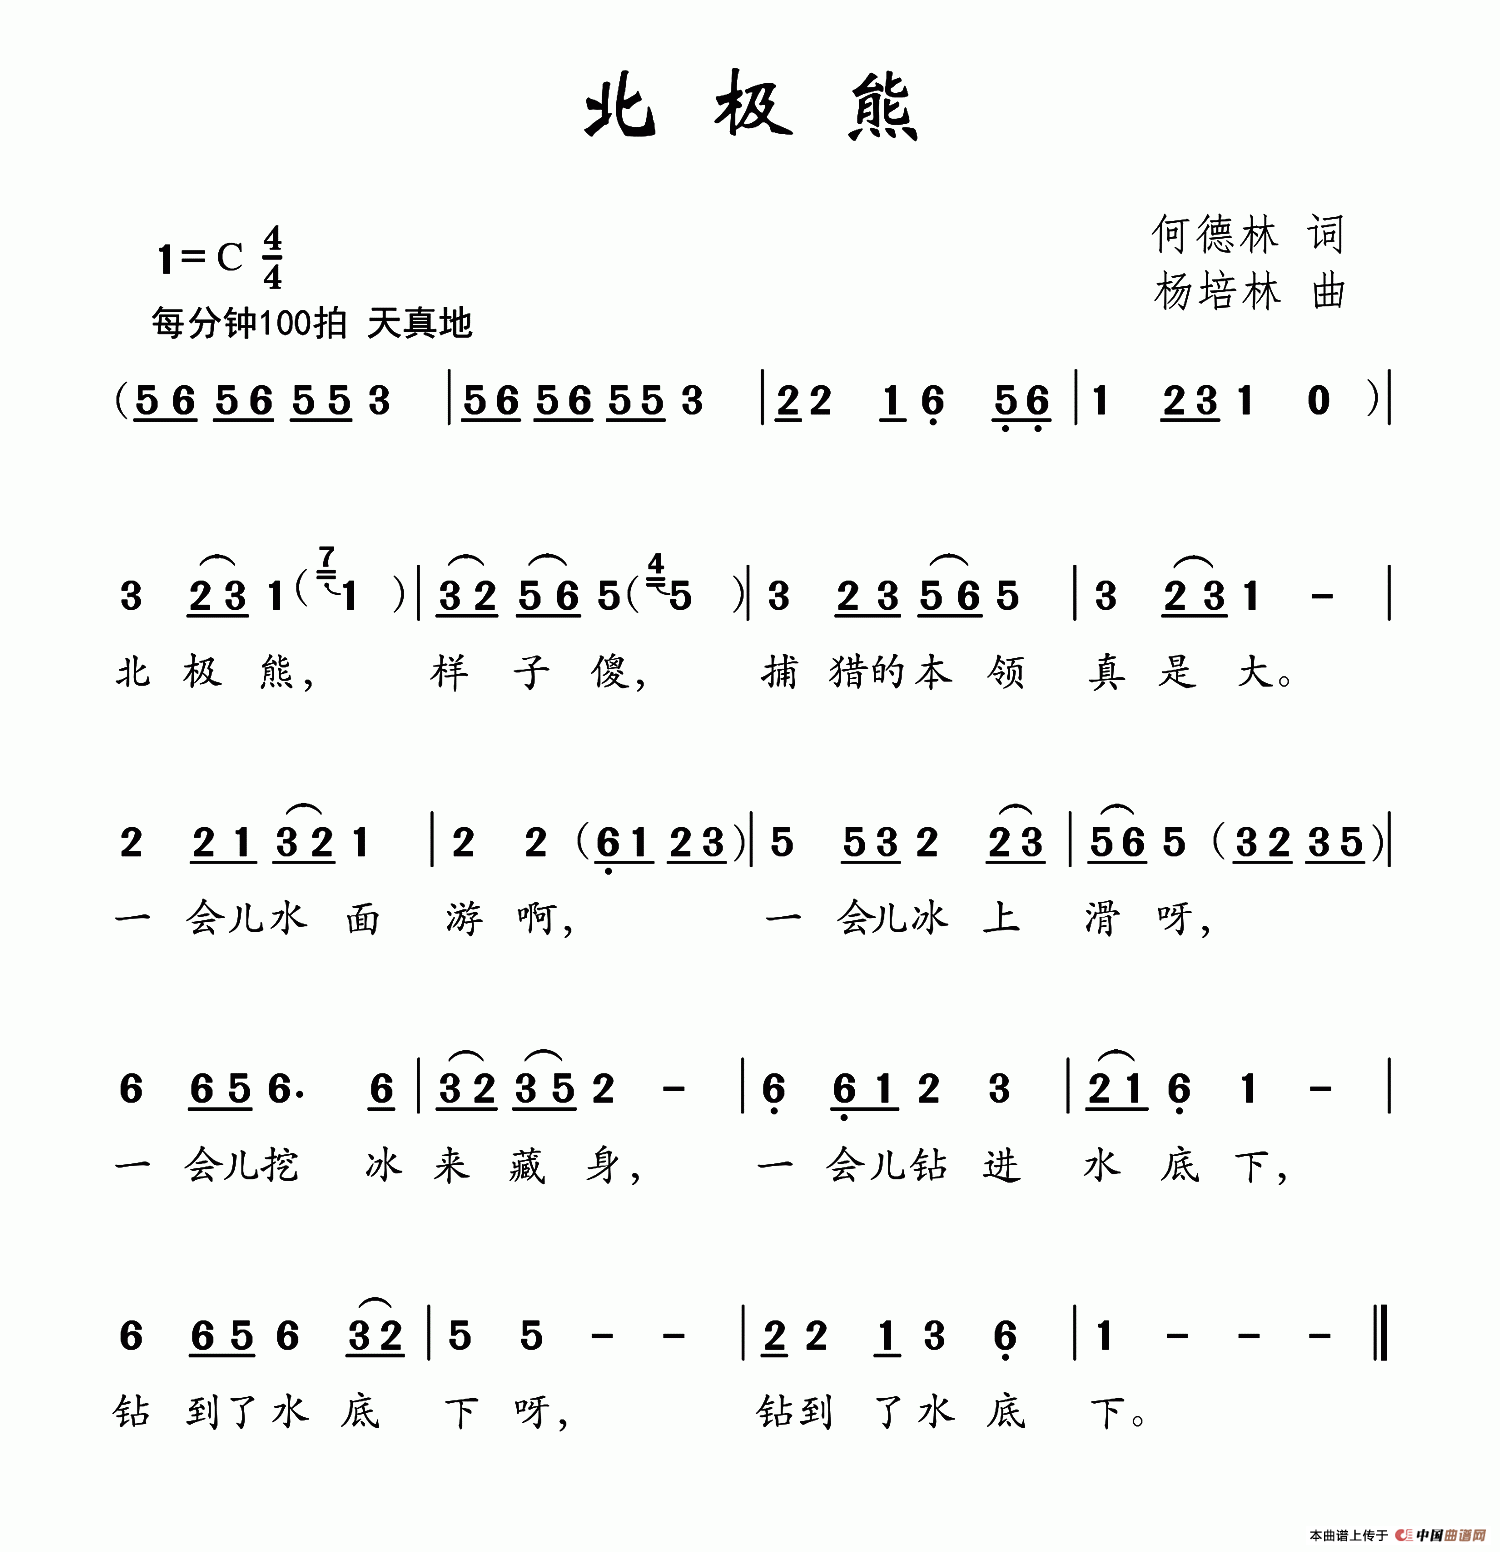 北极熊
1=C 4/4
何德林 词
杨培林 曲
每分钟100拍 天真地
(56 56 55 3 | 56 56 55 3 | 22 1 6 56 | 1 23 1 0 )|
3 23 1 ( 7 1 ) | 32 56 5 ( 4 5 ) | 3 23 56 5 | 3 23 1 - |
北 极 熊, 样 子 傻, 捕 猎的本 领 真 是 大。
2 21 32 1 | 2 2 (61 23)| 5 53 2 23 | 56 5 (32 35)|
一 会儿水 面 游 啊, 一 会儿冰 上 滑 呀,
6 65 6. 6 | 32 35 2 - | 6 61 2 3 | 21 6 1 - |
一 会儿挖 冰 来 藏 身, 一 会儿钻 进 水 底 下,
6 65 6 32 | 5 5 - - | 22 1 3 6 | 1 - - - ‖
钻 到了水 底 下 呀, 钻到 了水 底 下。
本曲谱上传于 中国曲谱网